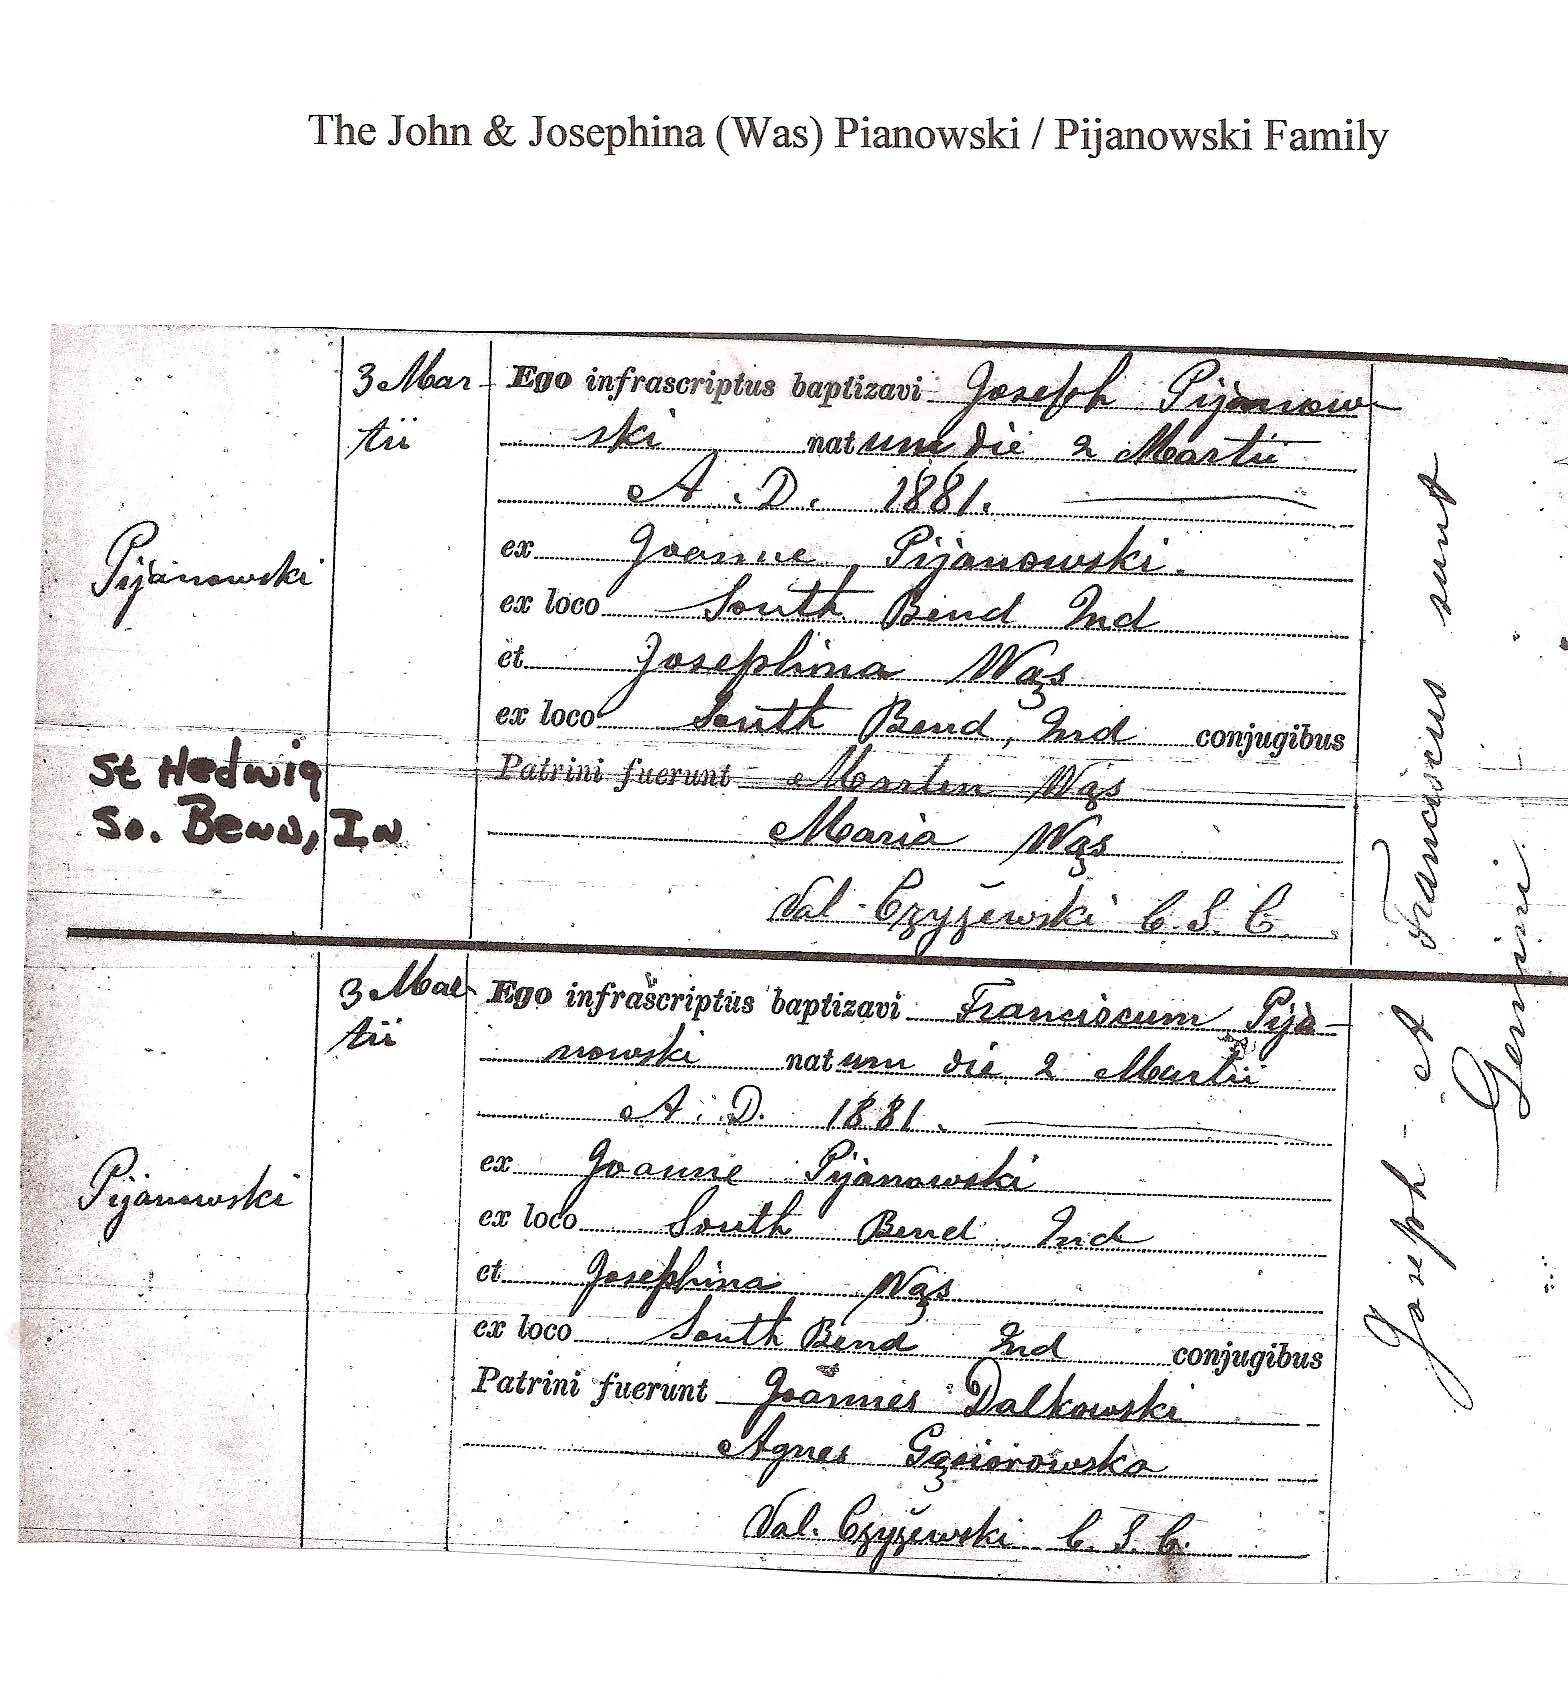 The John & Josephina (Was) Pianowski / Pijanowski Family
3 Mar-
tii
Pijanowski
St Hedwig
So. Bend, In
Ego infrascriptus baptizavi Joseph Pijanow-
ski natum die 2 Martii
A. D. 1881.
ex Joanne Pijanowski.
ex loco South Bend Ind
et Josephina Wąs
ex loco South Bend, Ind conjugibus
Patrini fuerunt Martin Wąs
Maria Wąs
Val. Czyżewski C. S. C.
3 Mar-
tii
Pijanowski
Ego infrascriptus baptizavi Franciscum Pija-
nowski natum die 2 Martii
A. D. 1881.
ex Joanne Pijanowski
ex loco South Bend Ind
et Josephina Wąs
ex loco South Bend Ind conjugibus
Patrini fuerunt Joannes Dalkowski
Agnes Gąsiorowska
Val. Czyżewski C. S. C.
Joseph - et Franciscus sunt
Gemini